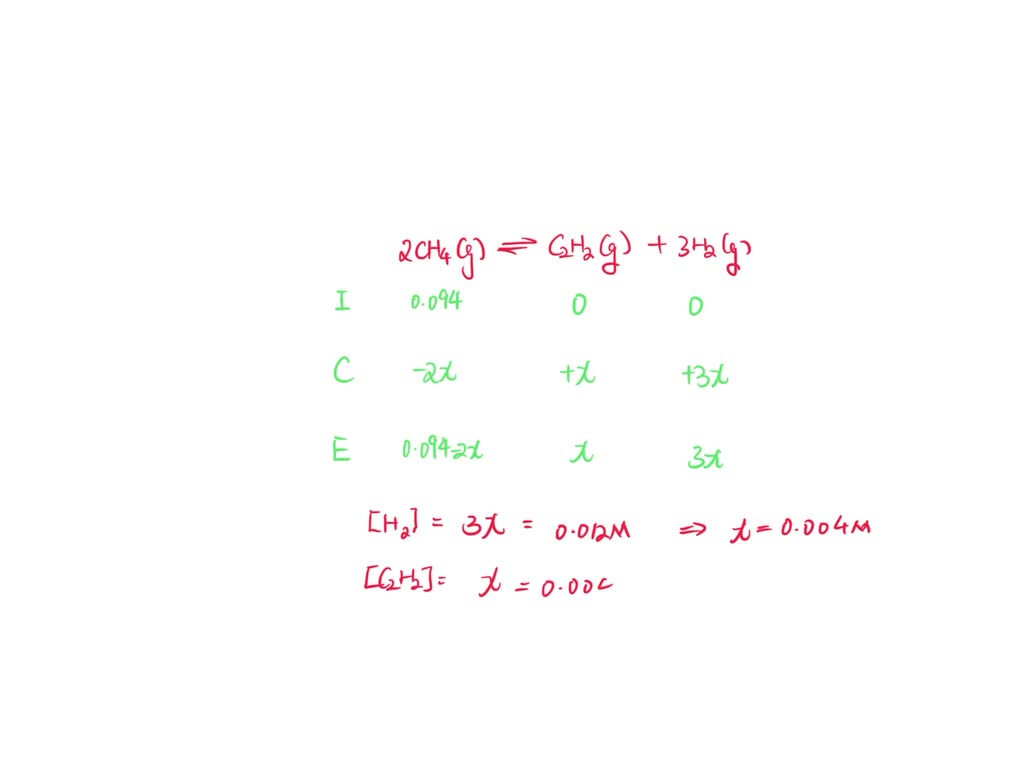 2CH₄(g) ⇌ C₂H₂(g) + 3H₂(g)
I 0.094 0 0
C -2x +x +3x
E 0.094-2x x 3x
[H₂] = 3x = 0.012M ⇒ x = 0.004M
[C₂H₂] = x = 0.00